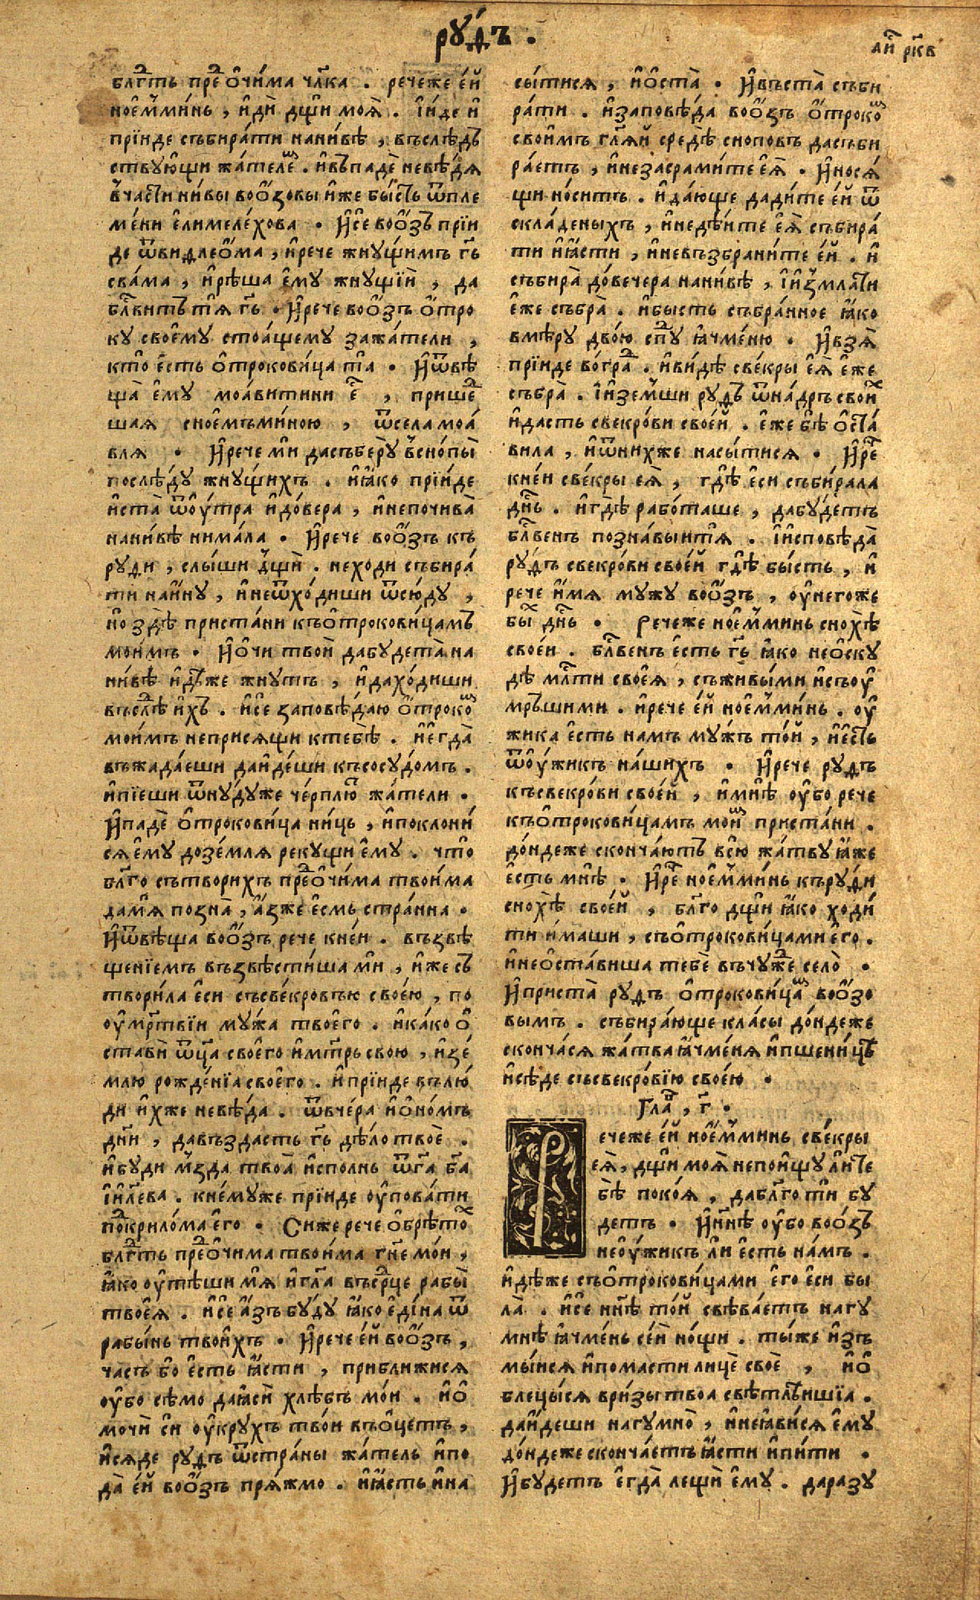 рꙋ́дъ .
ркв
блгⷣть пре́ ѻ҆чи́ма чл҃ка . рече́же е҆́й
ное҆мми́нь , и҆дѝ дщи моѧ̀ . І҆и҆́де и҆
прїи́де събира́ти нани́вѣ , въслѣ́дъ
ствꙋю҆щи жа́теле . и҆въпадѐ невѣ́дѧ
в̾ча́сти ни́вы воо́зовы и҆́же бы́сть ѿпле
ме́ни е҆лимеле́хова . И҆́се воо́зъ прїи
де ѿвиѳлео́ма , и҆рече жнꙋ́щимъ гь҃
сва́ма , и҆рѣ́ша е҆мꙋ̀ жнꙋ́щїи , да
блⷭ҇ви́тъ тѧ̀ гь҃ . И҆рече воо́зъ ѻ҆́тро
кꙋ своемꙋ̀ стоѧ́щемꙋ зажа́тели ,
кто е҆́сть ѻ҆трокови́ца та̀ . И҆ѿвѣ
ща̀ е҆мꙋ̀ моави́тини е҆́ , прише́
шаѧ сное҆мъми́ною , ѿсела̀ моа́
влѧ . И҆рече ми дасъберꙋ̀ в̾снопы̀
послѣ́дꙋ жнꙋ́щихъ . и҆ꙗ҆́ко прїи́де
и҆ста̀ ѿоу҆́тра и҆до́вера , и҆непочива̀
нани́вѣ нима́ла . И҆рече воо́зъ къ
рꙋ́ди , слы́ши дщи . неходѝ събира́
ти наи҆́нꙋ , и҆неѿхо́диши ѿсю́дꙋ ,
но здѣ̀ приста́ни къѻ҆трокови́цамъ
мои́мъ . И҆о́чи твоѝ дабꙋ́дета на
ни́вѣ и҆дѣ́же жнꙋ́тъ , и҆дахо́диши
въслѣ́ и҆́хъ . и҆се заповѣ́даю ѻ҆троко́
мои́мъ неприсѧщи ктебѣ̀ . и҆е҆гда̀
въжада́еши даи҆де́ши късосꙋ́домъ .
и҆пїеши ѿнꙋ́дꙋже че́рплю жа́тели .
И҆падѐ ѻ҆трокови́ца ни́ць , и҆поклони́
сѧ е҆мꙋ̀ дозе́млѧ рекꙋ́щи е҆мꙋ̀ . что̀
блг҃о сътвори́хъ пре́ѻ҆чи́ма твои́ма
дамѧ̀ позна̀ , а҆́зже е҆́смь стра́нна .
И҆ѿвѣ́ща воо́зъ рече кне́и . възвѣ
ще́нїемъ възвѣсти́ша мѝ , и҆́же съ
твори́ла е҆сѝ съсвекро́вьѫ свое́ю , по
оу҆мр҃твїи мꙋ́жа твоего̀ . и҆ка́ко ѻ҆
ста́ви ѿц҃а своего̀ и҆мт҃рь свою̀ , и҆зе́
млю рожде́нїа своего̀ . и҆прїи́де вълю́
ди и҆́хже невѣ́да . ѿвче́ра и҆о҆но́мъ
дн҃и , давъзда́сть гь҃ дѣ́ло твоѐ .
и҆бꙋ́ди мзда̀ твоа̀ и҆спо́лнь ѿг҃а б҃а
І҆и҆л҃ева . кнемꙋ́же прїи́де оу҆пова́ти
покри́лома е҆го̀ . Си́же рече ѻ҆брѣ́то
блгⷣть пре́ѻ҆чи́ма твои́ма гн҃е мо́и ,
ꙗ҆́ко оу҆тѣ́ши мѧ̀ и҆гл҃а въсрⷣце рабы̀
твоеѧ̀ . и҆́се а҆́зъ бꙋ́дꙋ ꙗ҆́ко е҆ди́на ѿ
рабы́нь твои́хъ . И҆рече е҆́й воо́зъ ,
часъ бо е҆́сть ꙗ҆́сти , прибли́жисѧ
оу҆́бо сѣ́мо даꙗ҆сѝ хлѣ́бъ мо́и . и҆ѻ
мочѝ си оу҆крꙋ́хъ тво́и въѻ҆́цетъ ,
и҆сѧде рꙋ́дъ ѿстра́ны жа́тель и҆по
да̀ е҆́й воо́зъ прѧ́жмо . и҆ꙗ҆́сть и҆на
сы́тисѧ , и҆ѻ҆ста̀ . И҆въста̀ съби
ра́ти . и҆заповѣ́да воо́зъ ѻ҆́троко
свои́мъ гл҃ѧй средѣ̀ снопо́въ дасъби
ра́етъ , и҆незасрами́те е҆ѧ̀ . И҆носѧ́
щи но́ситъ . и҆даю́ще дади́те е҆́й ѿ
складе́ныхъ , и҆недѣ́ите е҆ѧ̀ събира́
ти и҆ꙗ҆́сти , и҆невъзбрани́те е҆́й . и҆
събира̀ до́вечера нани́вѣ , І҆и҆змла́ти
е҆́же събра̀ . и҆бы́сть събра́нное ꙗ҆́ко
вмѣ́рꙋ двою̀ спꙋ ꙗ҆чме́ню . И҆взѧ̀
прїи́де во́гра . и҆ви́дѣ све́кры е҆ѧ̀ е҆́же
събра̀ . І҆и҆зе́мши рꙋ́дъ ѿна́дръ свои
и҆да́сть свекро́ви свое́й . е҆́же бѣ̀ ѻ҆ста́
вила , и҆ѿни́хже насы́тисѧ . И҆рⷱе
кне́и све́кры еѧ̀ , гдѣ̀ е҆сѝ събира́ла
дн҃ь . и҆гдѣ̀ рабо́таше , дабꙋ́детъ
блⷭ҇ве́нъ позна́выитѧ . І҆и҆сповѣ́да
рꙋ́дъ свекро́ви свое́й гдѣ̀ бы́сть , и҆
рече и҆́мѧ мꙋ́жꙋ воо́зъ , оу҆него́же
бы́ дн҃ь . Рече́же ное҆мми́нь сносѣ̀
свое́и . блⷭ҇ве́нъ е҆́сть гь҃ ꙗ҆́ко нео҆скꙋ
дѣ̀ млⷭ҇ти своеѧ̀ , съживы́ми и҆съоу҆
мръ́шими . и҆рече е҆́й ное҆мми́нь . оу҆́
жика е҆́сть на́мъ мꙋ́жъ то́й , и҆е҆́сть
ѿоу҆́жикъ на́шихъ . И҆рече рꙋ́дъ
късвекро́ви свое́й , и҆мнѣ̀ оу҆́бо рече
къѻ҆трокови́цамъ мои́ приста́ни .
до́ндеже сконча́ютъ всю̀ жа́твꙋ ꙗ҆́же
е҆́сть мнѣ̀ . И҆рⷱе ное҆мми́нь кърꙋ́ди
сносѣ̀ свое́й , блг҃о дщи ꙗ҆́ко ходи́
ти и҆́маши , съѻ҆трокови́цами е҆го̀ .
и҆нео҆ста́виша тебѐ въчꙋ́жⷣе село̀ .
И҆приста̀ рꙋ́дъ ѻ҆трокови́ца воо́зо
вымъ . събира́юще кла́сы до́ндеже
сконча́сѧ жа́тва ꙗ҆чме́нѧ и҆пшени́цѣ
и҆сѣ́де съсвекро́вїю свое́ю .
Гла҃ , г҃ .
Рече́же е҆́й ное҆мми́нь све́кры
еѧ̀ , дщи моѧ̀ непои҆щꙋ̀ ли те
бѣ̀ поко́ѧ , даблг҃о ти бꙋ́
детъ . И҆нн҃ѣ оу҆́бо воо́зъ
неоу҆́жикъ ли е҆́сть на́мъ .
и҆дѣ́же съѻ҆трокови́цами е҆го̀ е҆сѝ бы
ла̀ . и҆се нн҃ѣ то́й свѣва́етъ нагꙋ
мнѣ̀ ꙗ҆чме́нь се́й но́щи . ты́же и҆зъ
мы́исѧ и҆пома́сти лицѐ своѐ , и҆ѻ
блецы́сѧ ври́зы твоа̀ свѣтлѣ́ишїа .
даи҆де́ши нагꙋмно̀ , и҆неꙗ҆ви́сѧ е҆мꙋ̀
до́ндеже сконча́етъ ꙗ҆́сти и҆пи́ти .
И҆бꙋ́детъ е҆гда̀ лещѝ е҆мꙋ̀ . даразꙋ